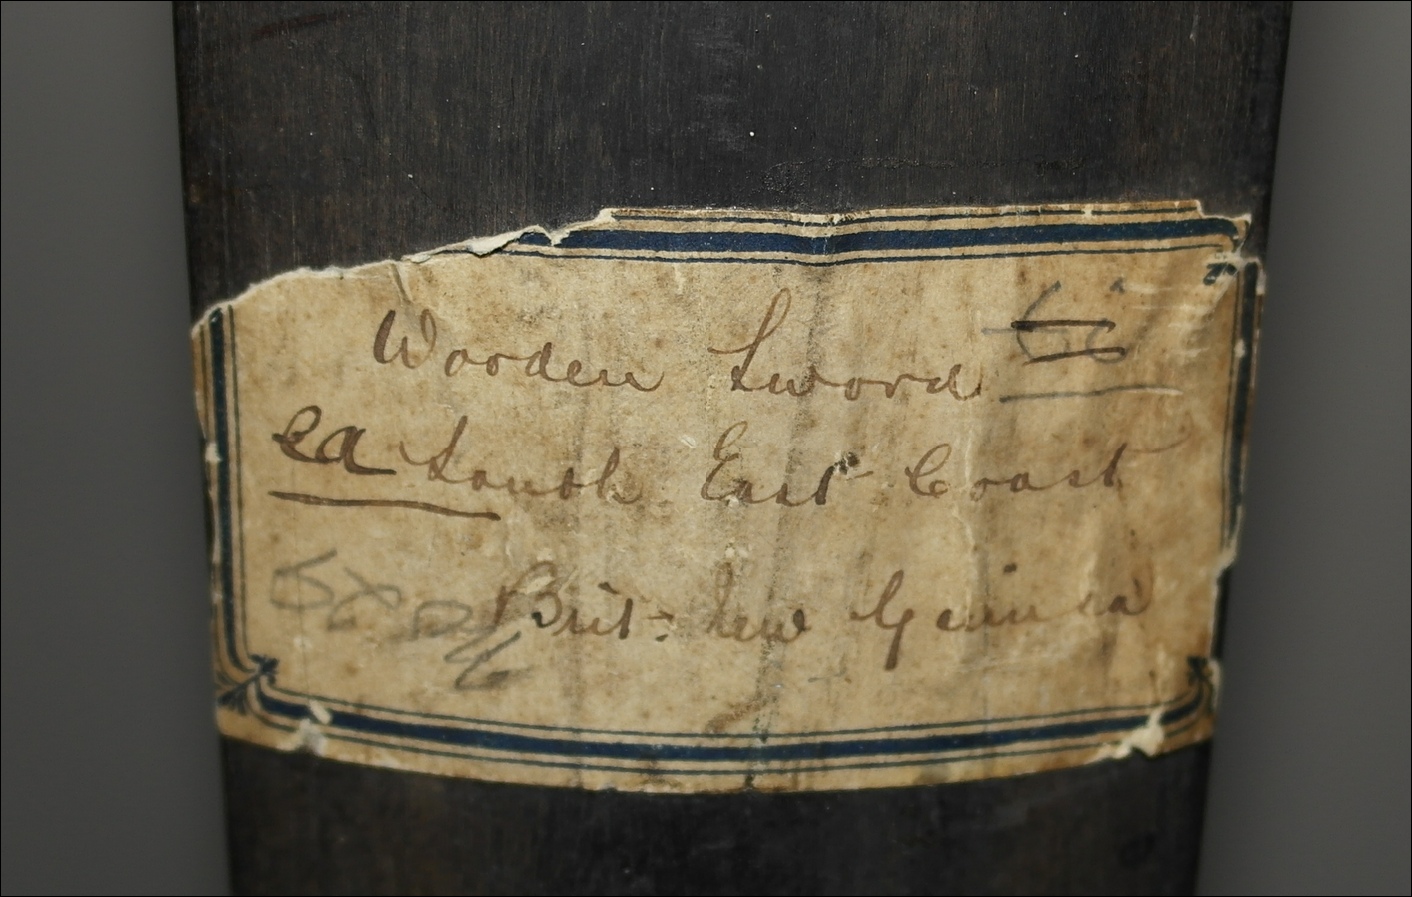 Wooden Sword
ea South East Coast
Brit: New Guinea